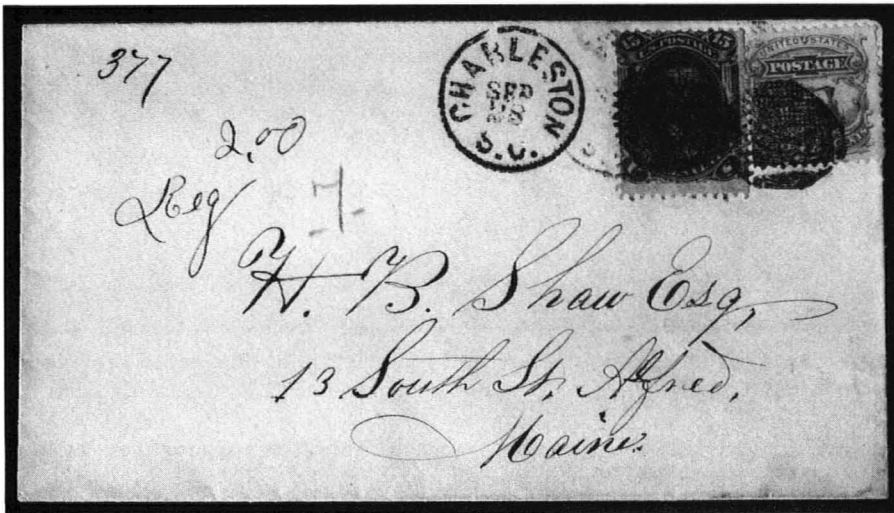 377
2.00
Reg
7
CHARLESTON
SEP
S.C.
15 U.S. POSTAGE 15
UNITED STATES
POSTAGE
H. B. Shaw Esq,
13 South St, Alfred,
Maine.